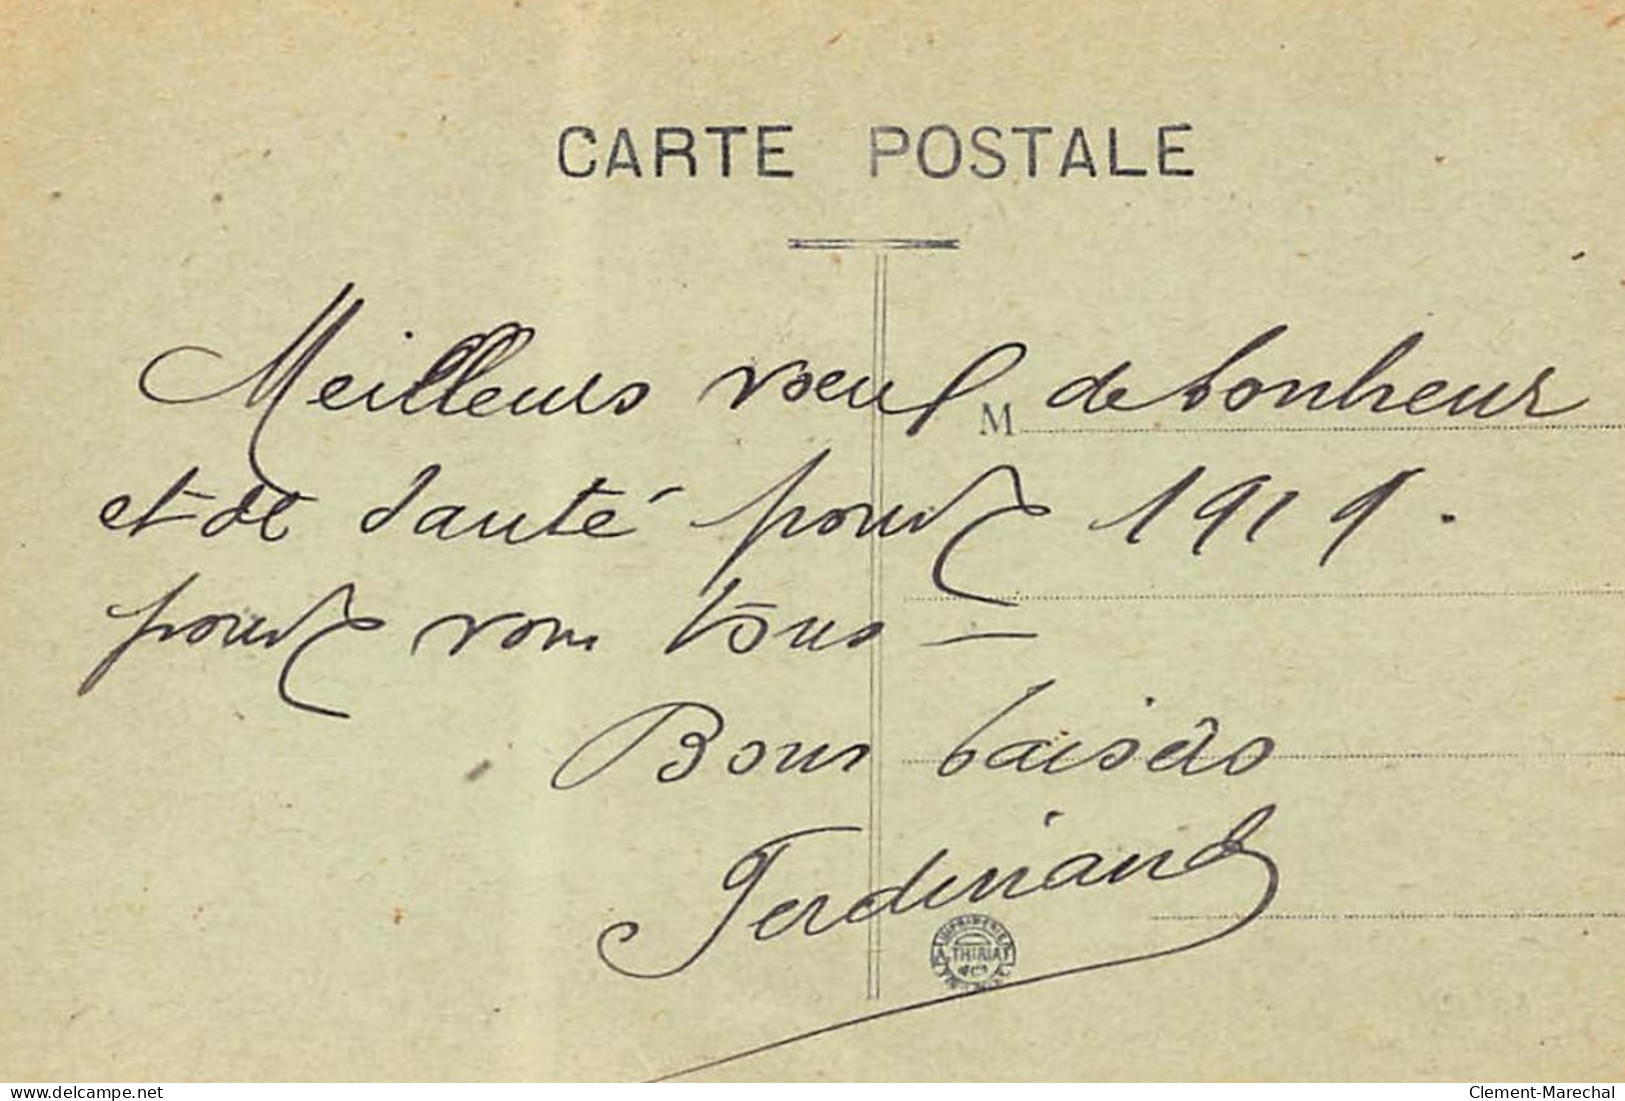 CARTE POSTALE
Meilleurs vœux de bonheur
M
et de santé pour 1919.
pour vous tous —
Bons baisers
Ferdinand
IMPRIMERIE
THIRIAT
delcampe.net
Clement-Marechal